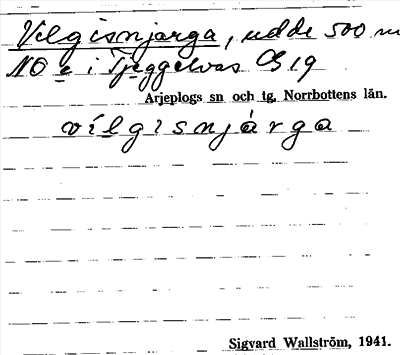 Vilgisnjarga, udde 500 m
NO e i Tjeggelvas G 19
Arjeplogs sn och tg, Norrbottens län.
vílgisnjárga
Sigvard Wallström, 1941.